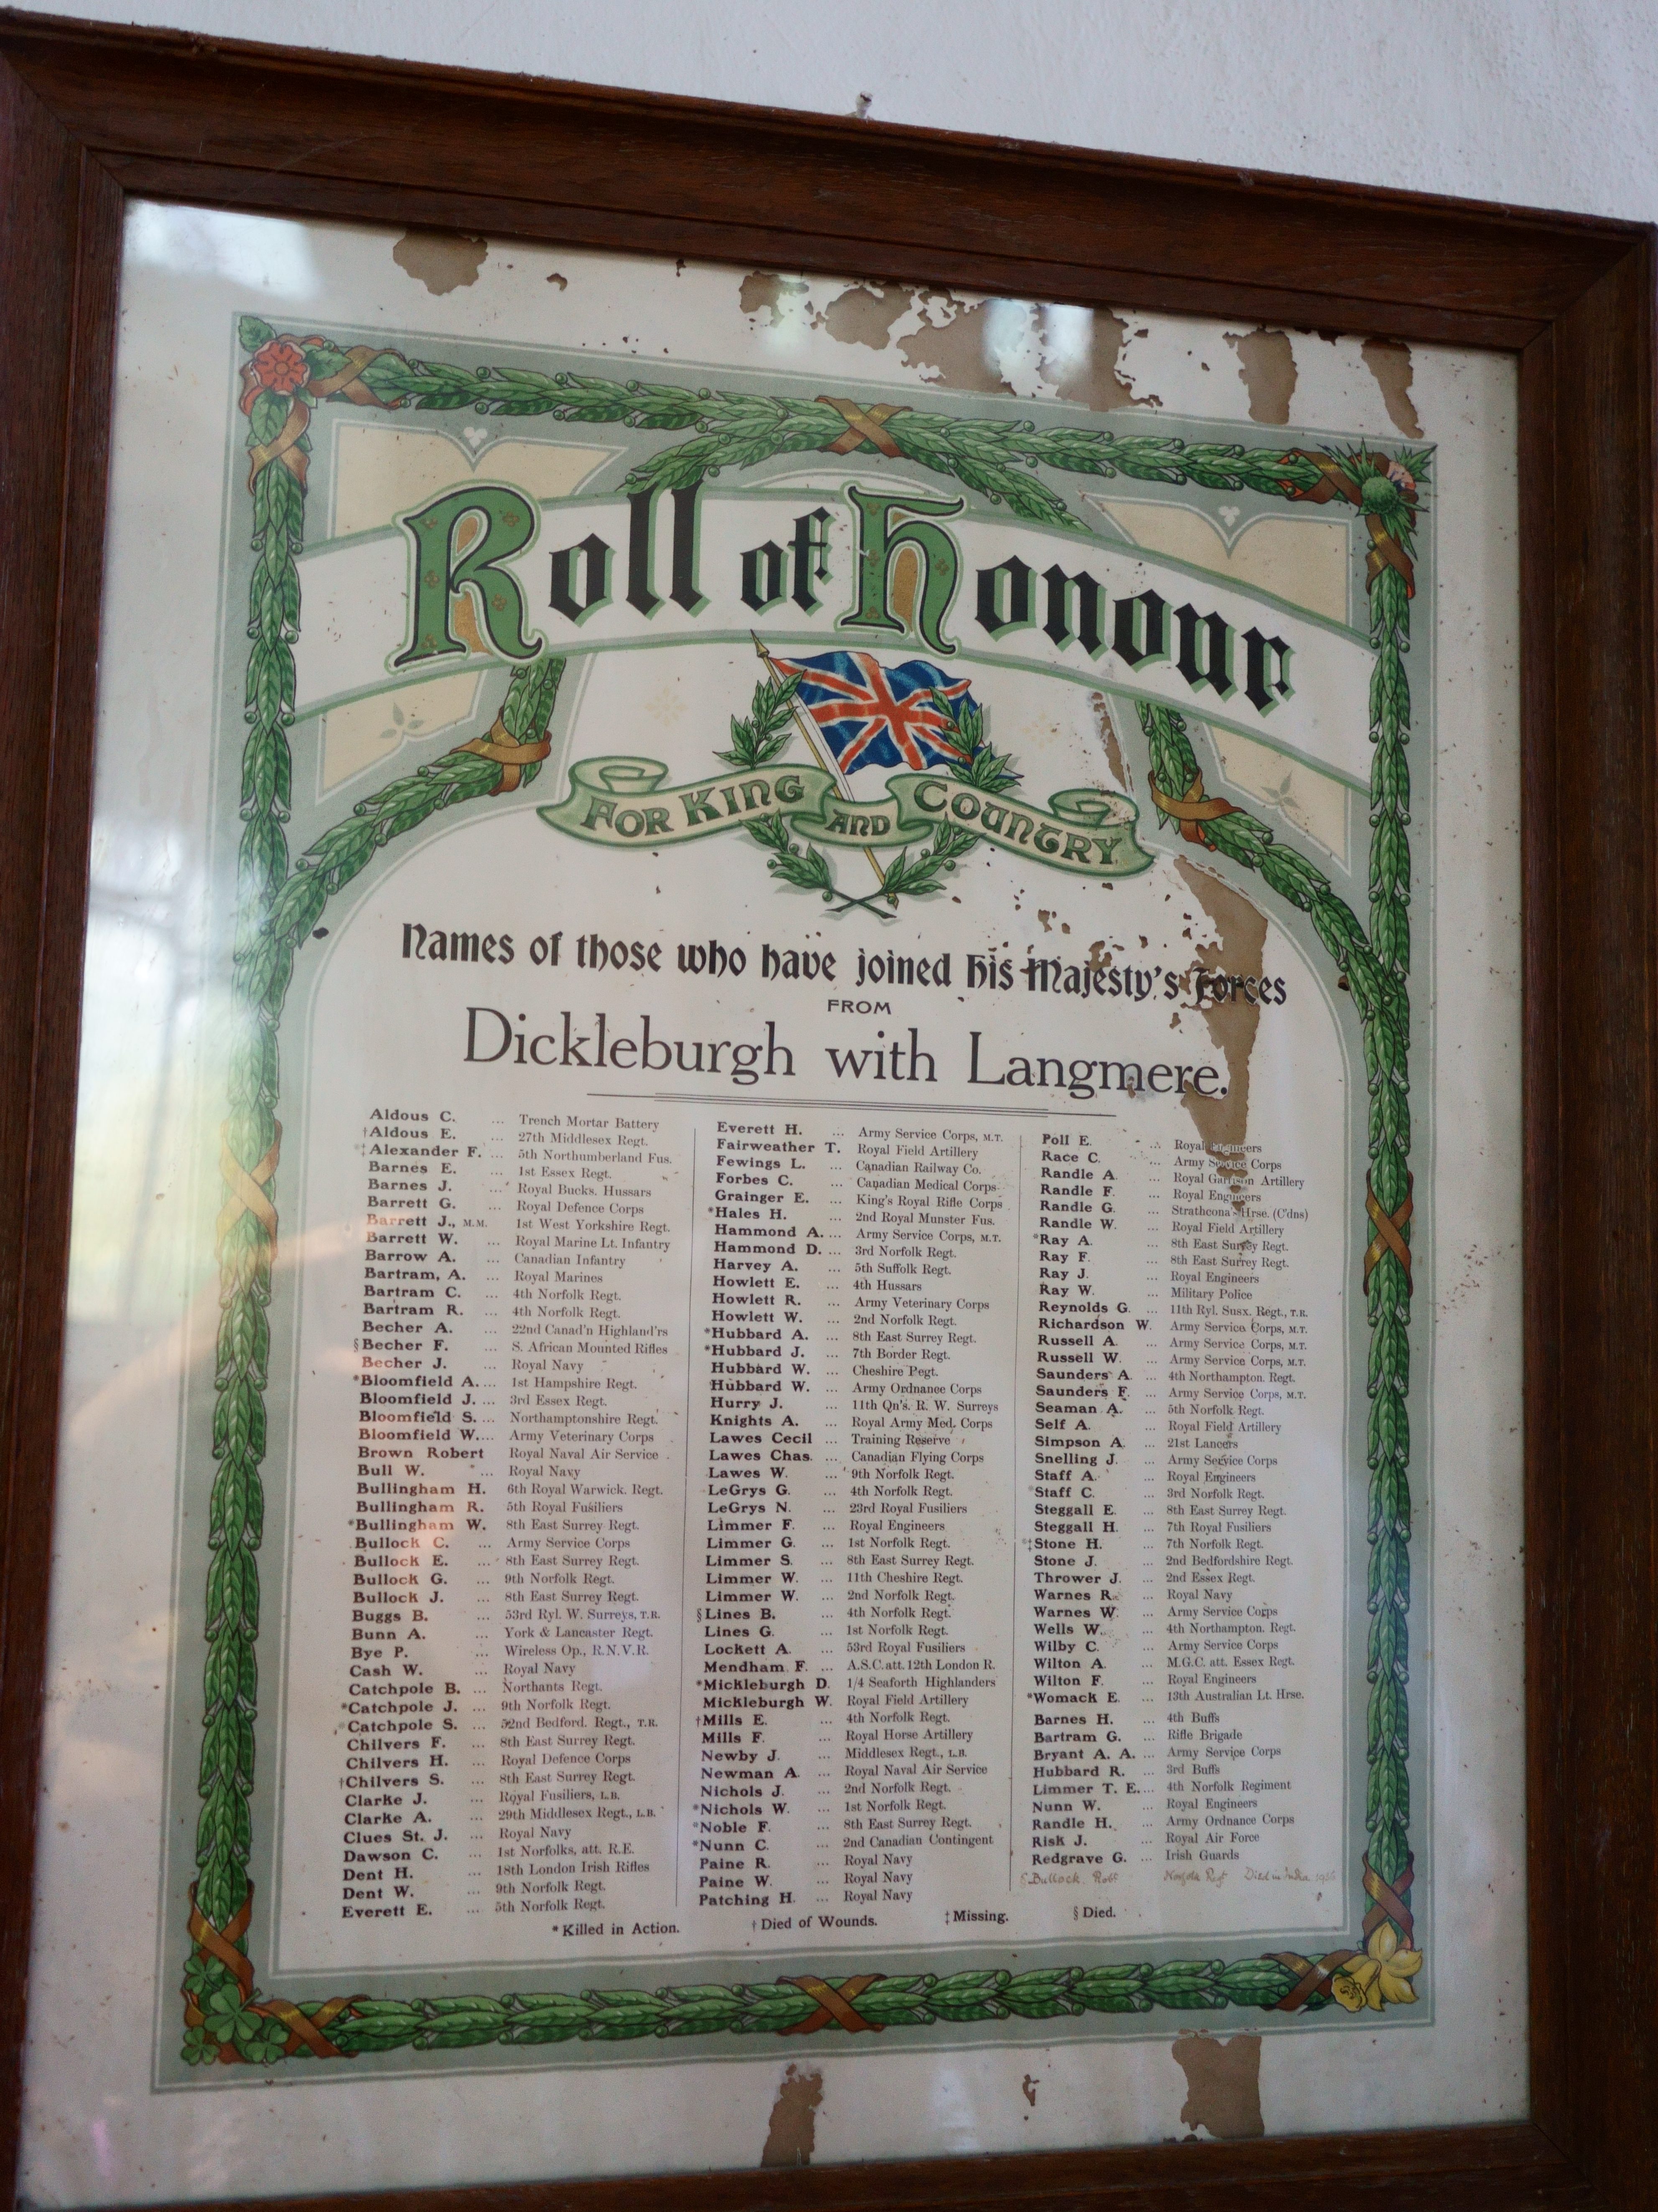 Roll of Honour
FOR KING AND COUNTRY
Names of those who have joined His Majesty's Forces
FROM
Dickleburgh with Langmere.
Aldous C. ... Trench Mortar Battery
†Aldous E. ... 27th Middlesex Regt.
‡Alexander F. ... 5th Northumberland Fus.
Barnes E. ... 1st Essex Regt.
Barnes J. ... Royal Bucks. Hussars
Barrett G. ... Royal Defence Corps
Barrett J., M.M. 1st West Yorkshire Regt.
Barrett W. ... Royal Marine Lt. Infantry
Barrow A. ... Canadian Infantry
Bartram, A. ... Royal Marines
Bartram C. ... 4th Norfolk Regt.
Bartram R. ... 4th Norfolk Regt.
Becher A. ... 22nd Canad'n Highland'rs
§Becher F. ... S. African Mounted Rifles
Becher J. ... Royal Navy
*Bloomfield A. ... 1st Hampshire Regt.
Bloomfield J. ... 3rd Essex Regt.
Bloomfield S. ... Northamptonshire Regt.
Bloomfield W. ... Army Veterinary Corps
Brown Robert Royal Naval Air Service
Bull W. ... Royal Navy
Bullingham H. 6th Royal Warwick. Regt.
Bullingham R. 5th Royal Fusiliers
*Bullingham W. 8th East Surrey Regt.
Bullock C. ... Army Service Corps
Bullock E. ... 8th East Surrey Regt.
Bullock G. ... 9th Norfolk Regt.
Bullock J. ... 8th East Surrey Regt.
Buggs B. ... 53rd Ryl. W. Surreys, T.R.
Bunn A. ... York & Lancaster Regt.
Bye P. ... Wireless Op., R.N.V.R.
Cash W. ... Royal Navy
Catchpole B. ... Northants Regt.
*Catchpole J. ... 9th Norfolk Regt.
*Catchpole S. ... 52nd Bedford. Regt., T.R.
Chilvers F. ... 8th East Surrey Regt.
Chilvers H. ... Royal Defence Corps
†Chilvers S. ... 8th East Surrey Regt.
Clarke J. ... Royal Fusiliers, L.B.
Clarke A. ... 29th Middlesex Regt., L.B.
Clues St. J. ... Royal Navy
Dawson C. ... 1st Norfolks, att. R.E.
Dent H. ... 18th London Irish Rifles
Dent W. ... 9th Norfolk Regt.
Everett E. ... 5th Norfolk Regt.
Everett H. ... Army Service Corps, M.T.
Fairweather T. Royal Field Artillery
Fewings L. ... Canadian Railway Co.
Forbes C. ... Canadian Medical Corps
Grainger E. ... King's Royal Rifle Corps
*Hales H. ... 2nd Royal Munster Fus.
Hammond A. ... Army Service Corps, M.T.
Hammond D. ... 3rd Norfolk Regt.
Harvey A. ... 5th Suffolk Regt.
Howlett E. ... 4th Hussars
Howlett R. ... Army Veterinary Corps
Howlett W. ... 2nd Norfolk Regt.
*Hubbard A. ... 8th East Surrey Regt.
*Hubbard J. ... 7th Border Regt.
Hubbard W. ... Cheshire Pegt.
Hubbard W. ... Army Ordnance Corps
Hurry J. ... 11th Qn's. R. W. Surreys
Knights A. ... Royal Army Med. Corps
Lawes Cecil ... Training Reserve
Lawes Chas. ... Canadian Flying Corps
Lawes W. ... 9th Norfolk Regt.
LeGrys G. ... 4th Norfolk Regt.
LeGrys N. ... 23rd Royal Fusiliers
Limmer F. ... Royal Engineers
Limmer G. ... 1st Norfolk Regt.
Limmer S. ... 8th East Surrey Regt.
Limmer W. ... 11th Cheshire Regt.
Limmer W. ... 2nd Norfolk Regt.
§Lines B. ... 4th Norfolk Regt.
Lines G. ... 1st Norfolk Regt.
Lockett A. ... 53rd Royal Fusiliers
Mendham F. ... A.S.C. att. 12th London R.
*Mickleburgh D. 1/4 Seaforth Highlanders
Mickleburgh W. Royal Field Artillery
†Mills E. ... 4th Norfolk Regt.
Mills F. ... Royal Horse Artillery
Newby J. ... Middlesex Regt., L.B.
Newman A. ... Royal Naval Air Service
Nichols J. ... 2nd Norfolk Regt.
*Nichols W. ... 1st Norfolk Regt.
*Noble F. ... 8th East Surrey Regt.
*Nunn C. ... 2nd Canadian Contingent
Paine R. ... Royal Navy
Paine W. ... Royal Navy
Patching H. ... Royal Navy
Poll E. ... Royal Engineers
Race C. ... Army Service Corps
Randle A. ... Royal Garrison Artillery
Randle F. ... Royal Engineers
Randle G. ... Strathcona Hrse. (C'dns)
Randle W. ... Royal Field Artillery
*Ray A. ... 8th East Surrey Regt.
Ray F. ... 8th East Surrey Regt.
Ray J. ... Royal Engineers
Ray W. ... Military Police
Reynolds G. ... 11th Ryl. Susx. Regt., T.R.
Richardson W. Army Service Corps, M.T.
Russell A. ... Army Service Corps, M.T.
Russell W. ... Army Service Corps, M.T.
Saunders A. ... 4th Northampton. Regt.
Saunders F. ... Army Service Corps, M.T.
Seaman A. ... 5th Norfolk Regt.
Self A. ... Royal Field Artillery
Simpson A. ... 21st Lancers
Snelling J. ... Army Service Corps
Staff A. ... Royal Engineers
*Staff C. ... 3rd Norfolk Regt.
Steggall E. ... 8th East Surrey Regt.
Steggall H. ... 7th Royal Fusiliers
*‡Stone H. ... 7th Norfolk Regt.
Stone J. ... 2nd Bedfordshire Regt.
Thrower J. ... 2nd Essex Regt.
Warnes R. ... Royal Navy
Warnes W. ... Army Service Corps
Wells W. ... 4th Northampton. Regt.
Wilby C. ... Army Service Corps
Wilton A. ... M.G.C. att. Essex Regt.
Wilton F. ... Royal Engineers
*Womack E. ... 13th Australian Lt. Hrse.
Barnes H. ... 4th Buffs
Bartram G. ... Rifle Brigade
Bryant A. A. ... Army Service Corps
Hubbard R. ... 3rd Buffs
Limmer T. E. ... 4th Norfolk Regiment
Nunn W. ... Royal Engineers
Randle H. ... Army Ordnance Corps
Risk J. ... Royal Air Force
Redgrave G. ... Irish Guards
Bullock Robt Norfolk Regt Died in India
* Killed in Action. † Died of Wounds. ‡ Missing. § Died.